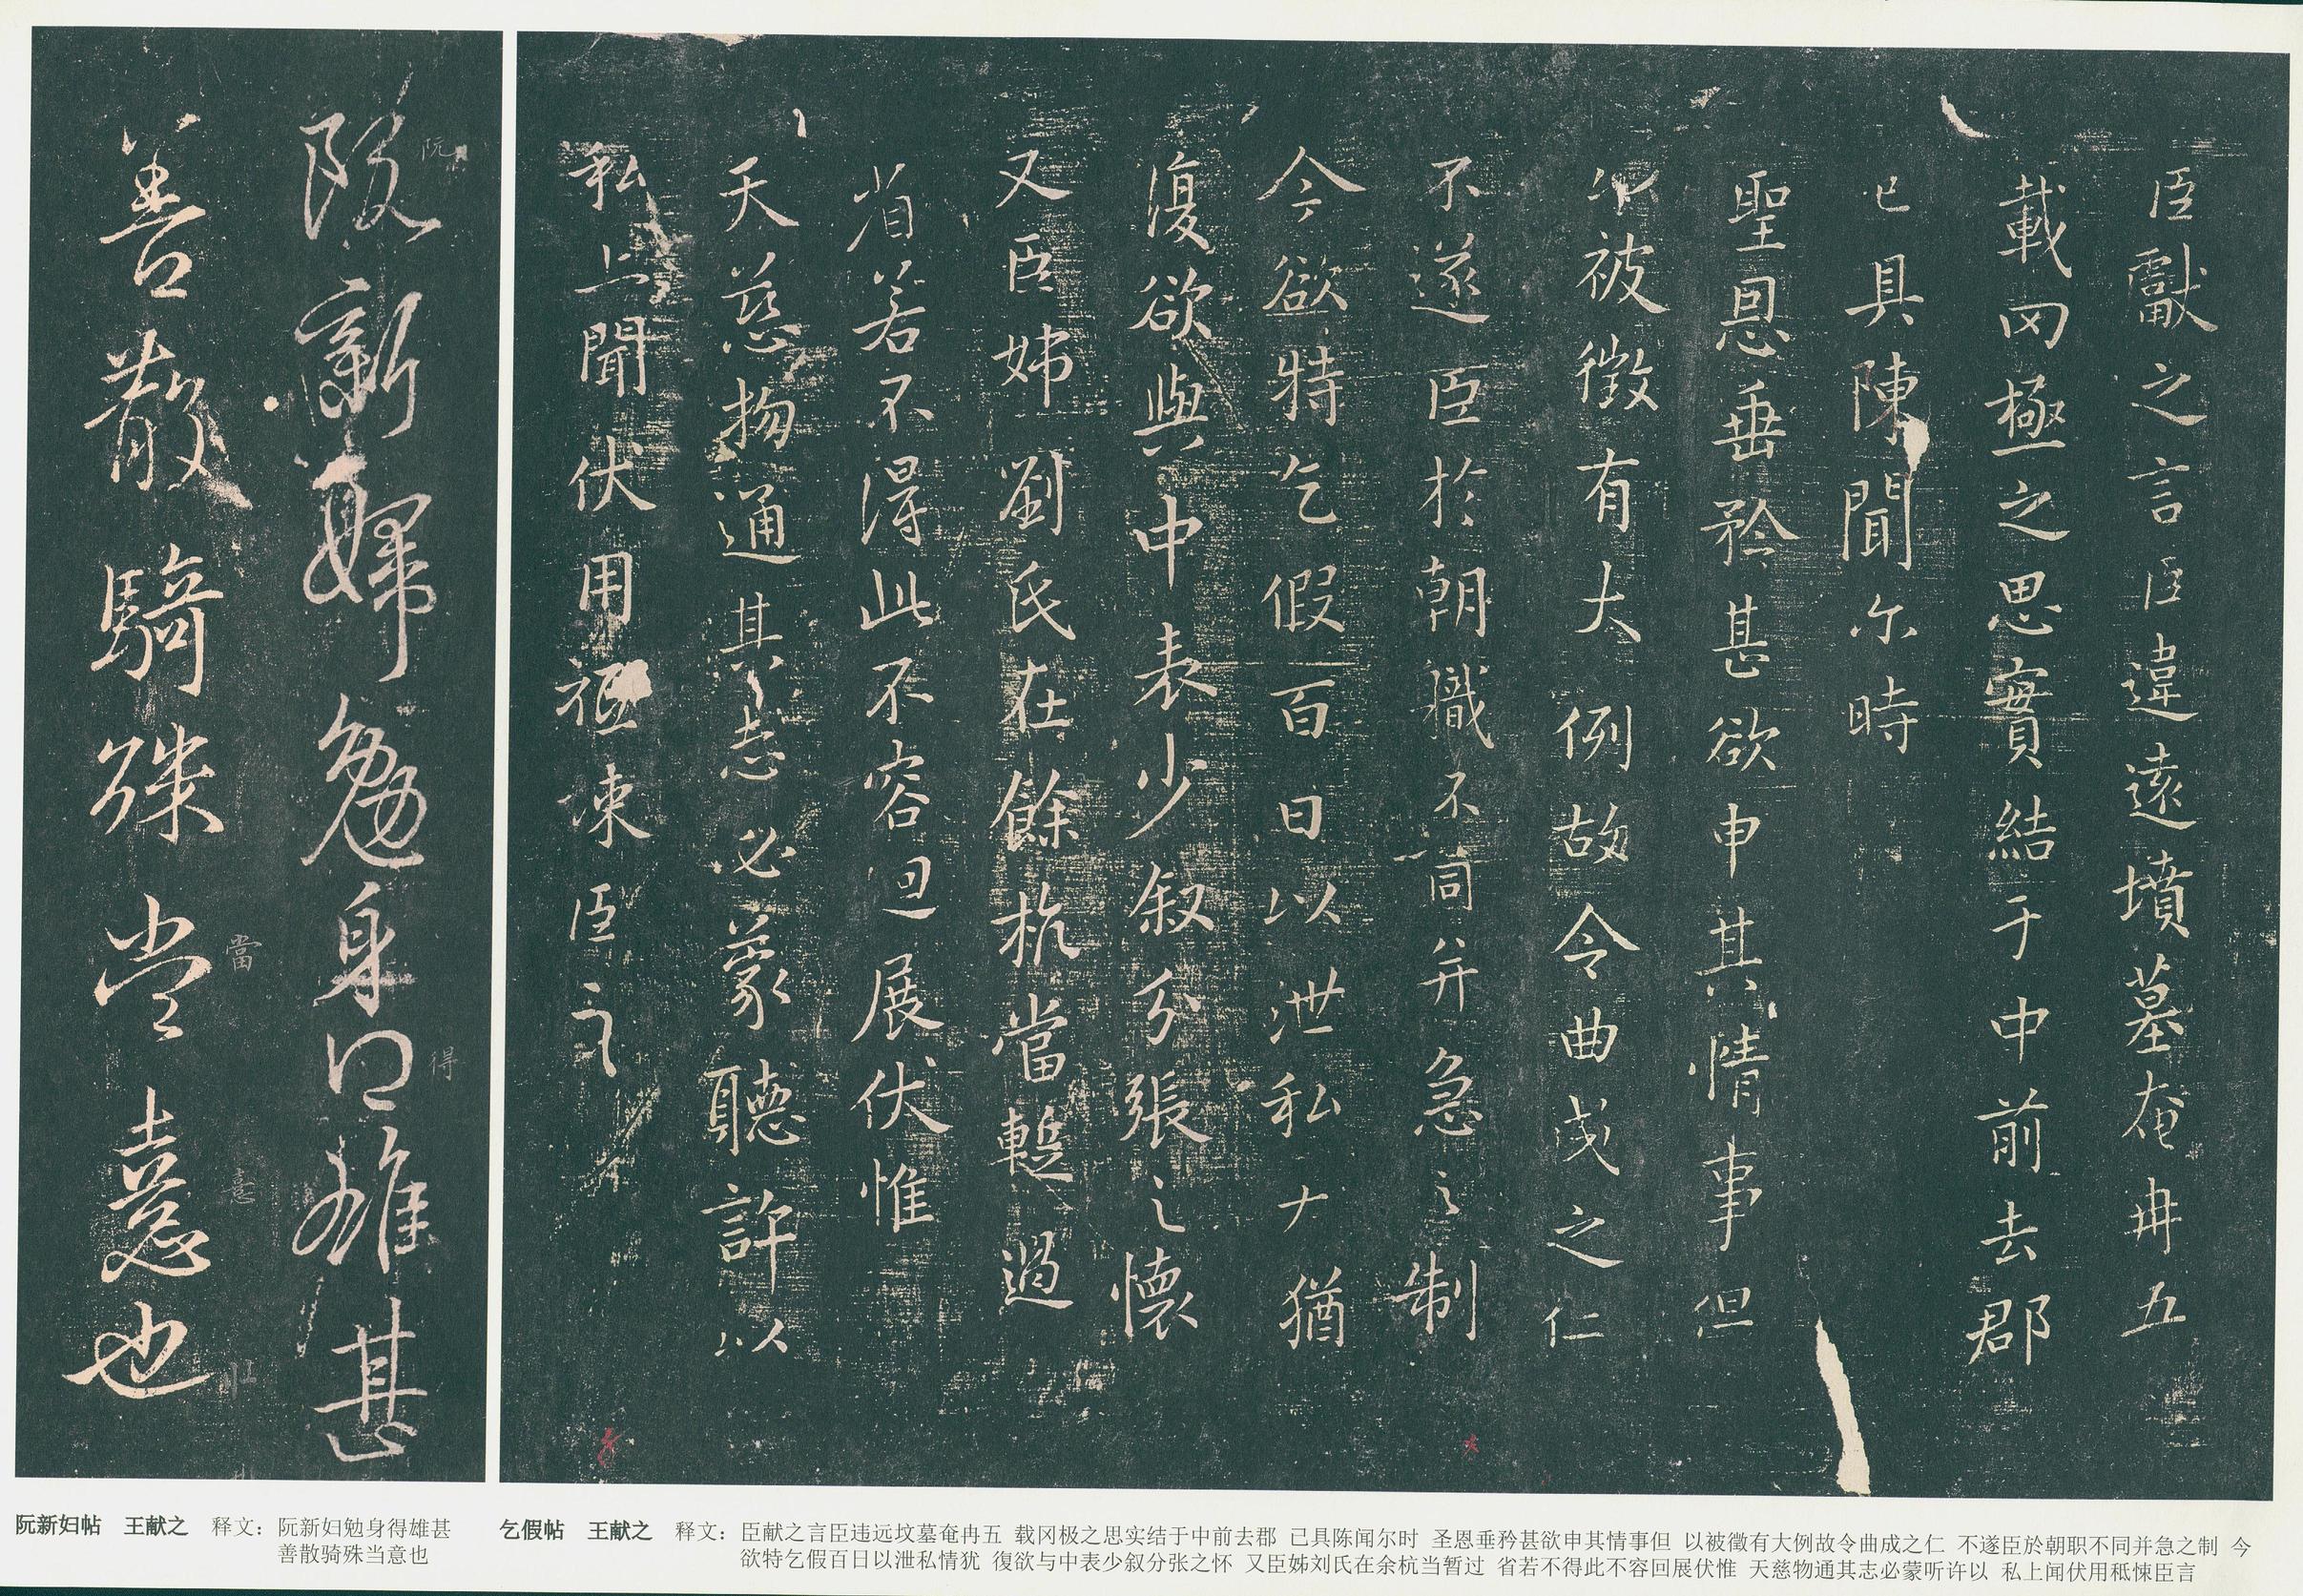 臣獻之言臣違遠墳墓奄冉五
載罔極之思實結于中前去郡
已具陳聞尓時
聖恩垂矜甚欲申其情事但
以被徵有大例故令曲成之仁
不遂臣於朝職不同并急之制
今欲特乞假百日以泄私 猶
復欲與中表少叙分張之懷
又臣姊劉氏在餘杭當蹔過
省若不得此不容迴展伏惟
天慈物通其志必蒙聽許以
私上聞伏用祗悚臣言
阮新婦勉身得雄甚
善散騎殊當憙也
阮
得
當
憙
阮新妇帖 王献之 释文：阮新妇勉身得雄甚
善散骑殊当意也
乞假帖 王献之 释文：臣献之言臣违远坟墓奄冉五 载冈极之思实结于中前去郡 己具陈闻尔时 圣恩垂矜甚欲申其情事但 以被徵有大例故令曲成之仁 不遂臣於朝职不同并急之制 今
欲特乞假百日以泄私情犹 復欲与中表少叙分张之怀 又臣姊刘氏在余杭当暂过 省若不得此不容回展伏惟 天慈物通其志必蒙听许以 私上闻伏用秪悚臣言